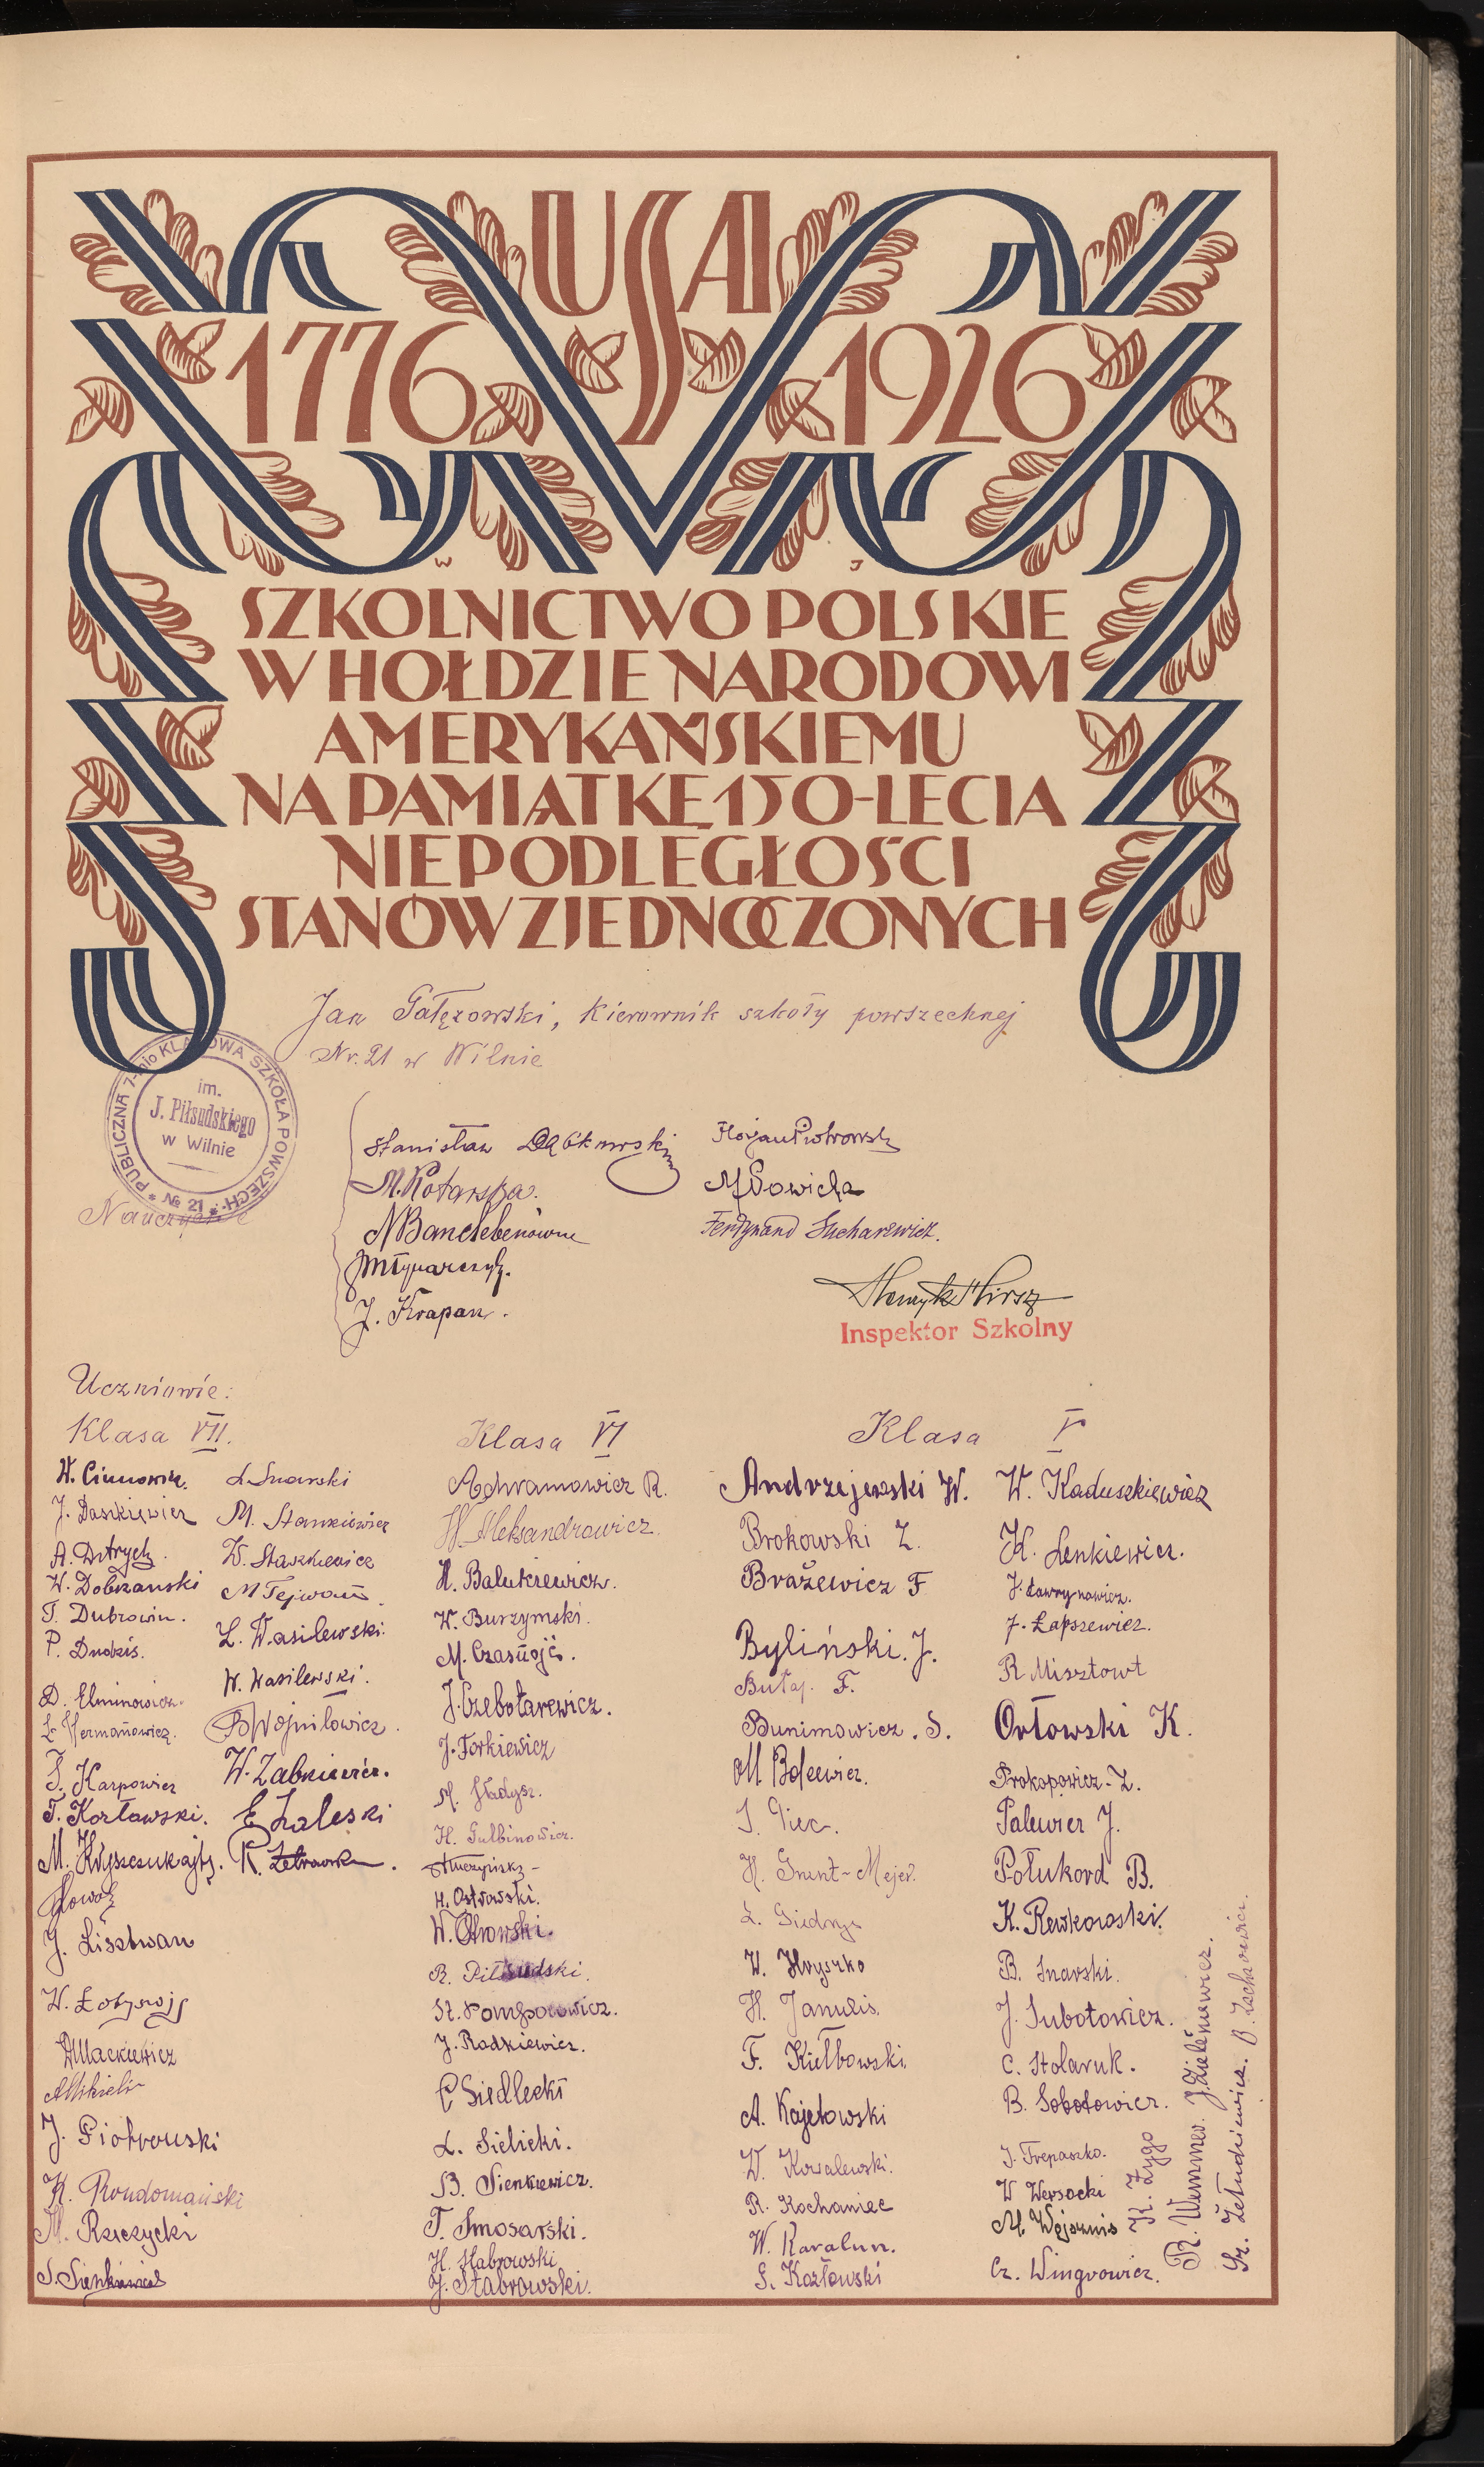 USA
1776 1926
W J
SZKOLNICTWO POLSKIE
W HOŁDZIE NARODOWI
AMERYKAŃSKIEMU
NA PAMIĄTKĘ 150-LECIA
NIEPODLEGŁOŚCI
STANÓW ZJEDNOCZONYCH
Jan Gałęzowski, Kierownik szkoły powszechnej
Nr. 21 w Wilnie
PUBLICZNA 7-mio KLASOWA SZKOŁA POWSZECH. № 21
im.
J. Piłsudskiego
w Wilnie
Nauczyciele
Stanisław Dąbkowski
M. Kotarska.
J. Krapan.
Florjan Piotrowski
Ferdynand Sucharewicz.
Henryk Hirsz
Inspektor Szkolny
Uczniowie:
Klasa VII.
J. Daszkiewicz
W. Dobrzanski
T. Dubrowin.
P. Dudzis.
D. Elminowicz.
L. Hermanowicz.
S. Karpowicz
T. Kozławski.
J. Lisztwan
W. Łotysowj
Mackiewicz
J. Piotrowski
K. Rondomański
M. Rzeczycki
S. Sienkiewicz
L. Snarski
M. Stankiewicz
W. Staszkiewicz
M Tejwan.
L. Wasilewski.
W. Wasilewski.
B Wojniłowicz.
W. Żabkiewicz.
E Zaleski
Klasa VI
Achramowicz R.
W. Aleksandrowicz.
H. Balukiewicz.
W. Burzymski.
M. Czasnojć.
J. Czebotarewicz.
J. Forkiewicz
M. Gładysz.
H. Gulbinowicz.
H. Ostrowski.
W. Ostrowski.
R. Piłsudski.
St. Pomporowicz.
J. Radkiewicz.
C Siedlecki
L. Sielicki.
B. Sienkiewicz.
T. Smosarski.
H. Stabrowski
J. Stabrowski.
Klasa V
Andrzejewski W.
Brokowski Z.
Brażewicz F
Byliński. J.
Butaj. F.
Bunimowicz. S.
M. Bolcewicz.
S. Giec.
H. Grunt-Mejer.
L. Giedrys
W. Hryszko
H. Janulis.
F. Kiełbowski.
A. Kajetowski
W. Kowalewski.
R. Kochaniec
W. Karalun.
G. Kozłowski
W. Kaduszkiewicz
K. Lenkiewicz.
J. Ławrynowicz.
J. Łapszewicz.
R Misztowt
Orłowski K.
Prokopowicz-Z.
Palewicz J.
Połukord B.
K. Rewkowski.
B. Snarski.
J. Subotowicz.
C. Stolaruk.
B. Sobotowicz.
J. Trepaszko.
W Wersocki
M. Wojsznis
Cz. Wingrowicz.
K. Żygo
R. Wimmer. J. Zieleniewicz.
St. Żełudziewicz. B. Zacharewicz.